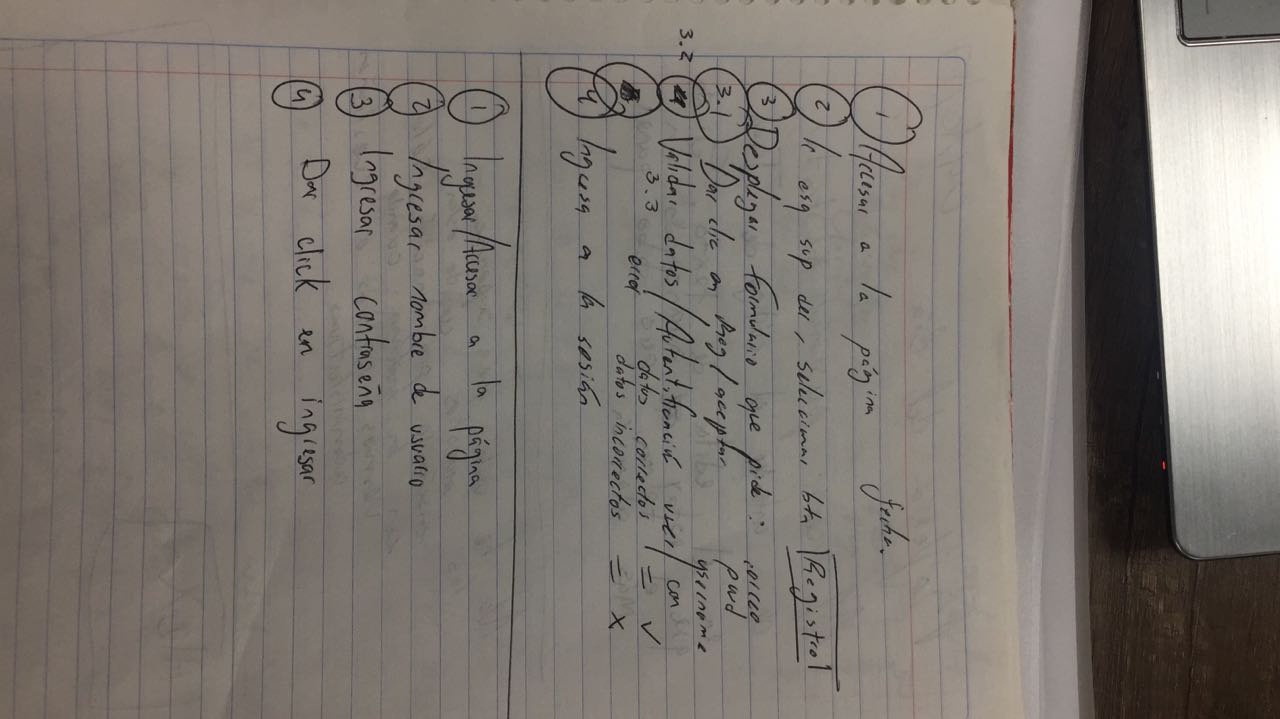 1 Accesar a la página fecha.
2 Ir esq sup der, seleccionar btn Registro
3 Desplegar formulario que pide: correo
3.1 Dar clic en Reg/aceptar pwd
username
3.2 Validar datos/Autentificación user/con
3.3 error datos correctos = ✓
datos incorrectos = x
4 Ingresa a la sesión
1 Ingresar/Accesar a la página
2 Ingresar nombre de usuario
3 Ingresar contraseña
4 Dar click en ingresar